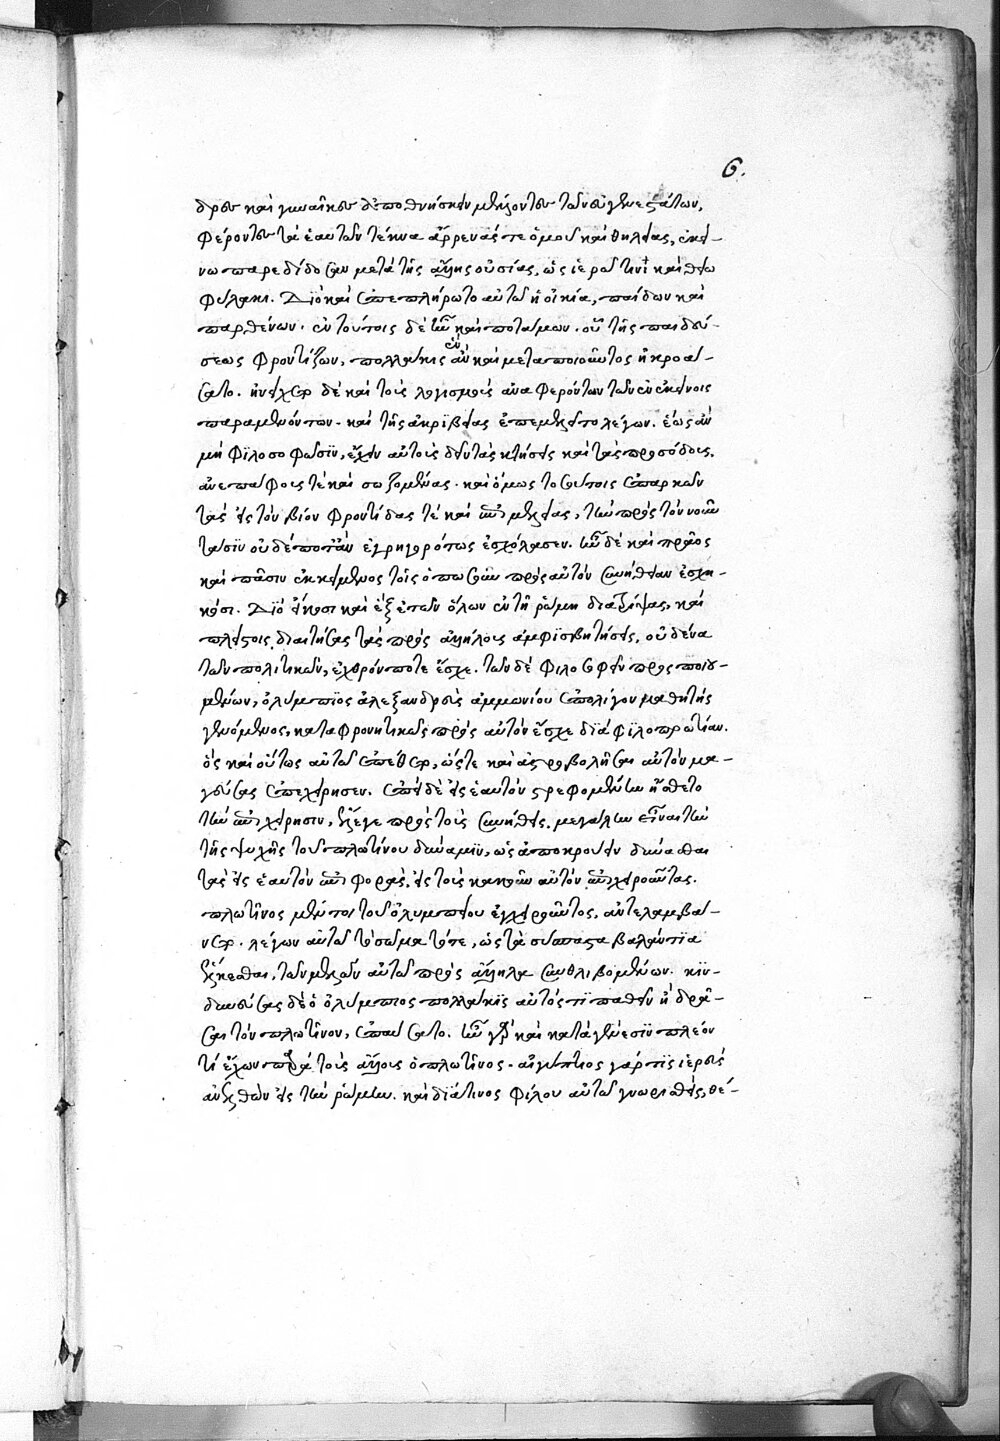 6.
δρες καὶ γυναῖκες ἀποθνήσκειν μέλλοντες τῶν εὐγενεστάτων,
φέροντες τὰ ἑαυτῶν τέκνα ἄρρενάς τε ὁμοῦ καὶ θηλείας, ἐκεί-
νω παρεδίδοσαν μετὰ τῆς ἄλλης οὐσίας, ὡς ἱερῶ τινὶ καὶ θείω
φύλακι. Διὸ καὶ ἐπεπλήρωτο αὐτῶ ἡ οἰκία, παίδων καὶ
παρθένων. ἐν τούτοις δὲ ἦν καὶ ποτάμων. οὗ τῆς παιδεύ-
σεως φροντίζων, πολλάκις ἂν ἓν καὶ μεταποιοῦντος ἠκροά-
σατο. ἠνείχετο δὲ καὶ τοὺς λογισμοὺς ἀναφερόντων τῶν ἐν ἐκείνοις
παραμενόντων. καὶ τῆς ἀκριβείας ἐπεμελεῖτο λέγων. ἕως ἂν
μὴ φιλοσοφῶσιν, ἔχειν αὐτοὺς δεῖ τὰς κτήσεις καὶ τὰς προσόδους,
ἀνεπάφους τὲ καὶ σωζομένας. καὶ ὅμως τοσούτοις ἐπαρκῶν
τὰς εἰς τὸν βίον φροντίδας τὲ καὶ ἐπιμελείας, τὴν πρὸς τὸν νοῦν
τάσιν οὐδέποτ' ἂν ἐγρηγορότως ἐχάλασεν. ἦν δὲ καὶ πρᾶος
καὶ πᾶσιν ἐκκείμενος τοῖς ὁπωσοῦν πρὸς αὐτὸν συνήθειαν ἐσχη-
κόσι. Διὸ εἴκοσι καὶ ἓξ ἐτῶν ὅλων ἐν τῆ ῥώμη διατρίψας, καὶ
πλείστοις διαιτήσας τὰς πρὸς ἀλλήλους ἀμφισβητήσεις, οὐδένα
τῶν πολιτικῶν, ἐχθρόν ποτε ἔσχε. τῶν δὲ φιλοσοφεῖν προσποιου-
μένων, ὀλύμπιος ἀλεξανδρεὺς ἀμμωνίου ἐπ' ὀλίγον μαθητὴς
γενόμενος, καταφρονητικῶς πρὸς αὐτὸν ἔσχε διὰ φιλοπρωτίαν.
ὃς καὶ οὕτως αὐτῶ ἐπέθετο, ὥστε καὶ ἀστροβολῆσαι αὐτὸν μα-
γεύσας ἐπεχείρησεν. ἐπεὶ δὲ εἰς ἑαυτὸν στρεφομένην ἤσθετο
τὴν ἐπιχείρησιν, ἔλεγε πρὸς τοὺς συνήθεις, μεγάλην εἶναι τὴν
τῆς ψυχῆς τοῦ πλωτίνου δύναμιν, ὡς ἀποκρούειν δύνασθαι
τὰς εἰς ἑαυτὸν ἐπιφορὰς, εἰς τοὺς κακοῦν αὐτὸν ἐπιχειροῦντας.
πλωτῖνος μέντοι τοῦ ὀλυμπίου ἐγχειροῦντος, ἀντελαμβά-
νετο. λέγων αὐτῶ τὸ σῶμα τότε, ὡς τὰ σύσπαστα βαλάντια
ἕλκεσθαι, τῶν μελῶν αὐτῶ πρὸς ἄλληλα συνθλιβομένων. κιν-
δυνεύσας δὲ ὁ ὀλύμπιος πολλάκις αὐτός τι παθεῖν ἢ δρᾶ-
σαι τὸν πλωτῖνον, ἐπαύσατο. ἦν γὰρ καὶ κατὰ γένεσιν πλέον
τι ἔχων παρὰ τοὺς ἄλλους ὁ πλωτῖνος. αἰγύπτιος γάρ τις ἱερεὺς
ἀνελθὼν εἰς τὴν ῥώμην. καὶ διά τινος φίλου αὐτῶ γνωρισθεὶς, θέ-